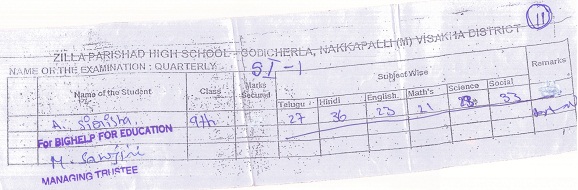 11
ZILLA PARISHAD HIGH SCHOOL - GODICHERLA, NAKKAPALLI (M) VISAKHA DISTRICT
NAME OF THE EXAMINATION : QUARTERLY SI-1
Name of the Student Class Marks Secured Subject Wise Remarks
Telugu Hindi English Math's Science Social
A. Sirisha 9th 27 36 23 21 33
For BIGHELP FOR EDUCATION
MANAGING TRUSTEE